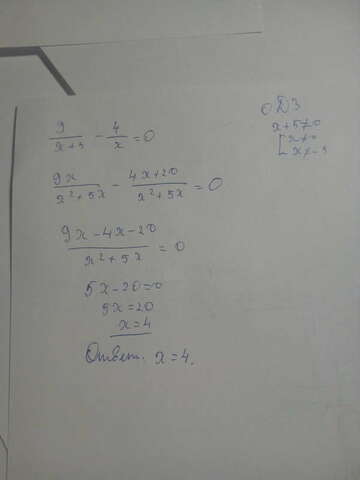 9/(x+5) - 4/x = 0
9x/(x²+5x) - (4x+20)/(x²+5x) = 0
(9x-4x-20)/(x²+5x) = 0
5x-20=0
5x=20
x=4
Ответ: x=4.
ОДЗ
x+5≠0
[x≠0
x≠-5